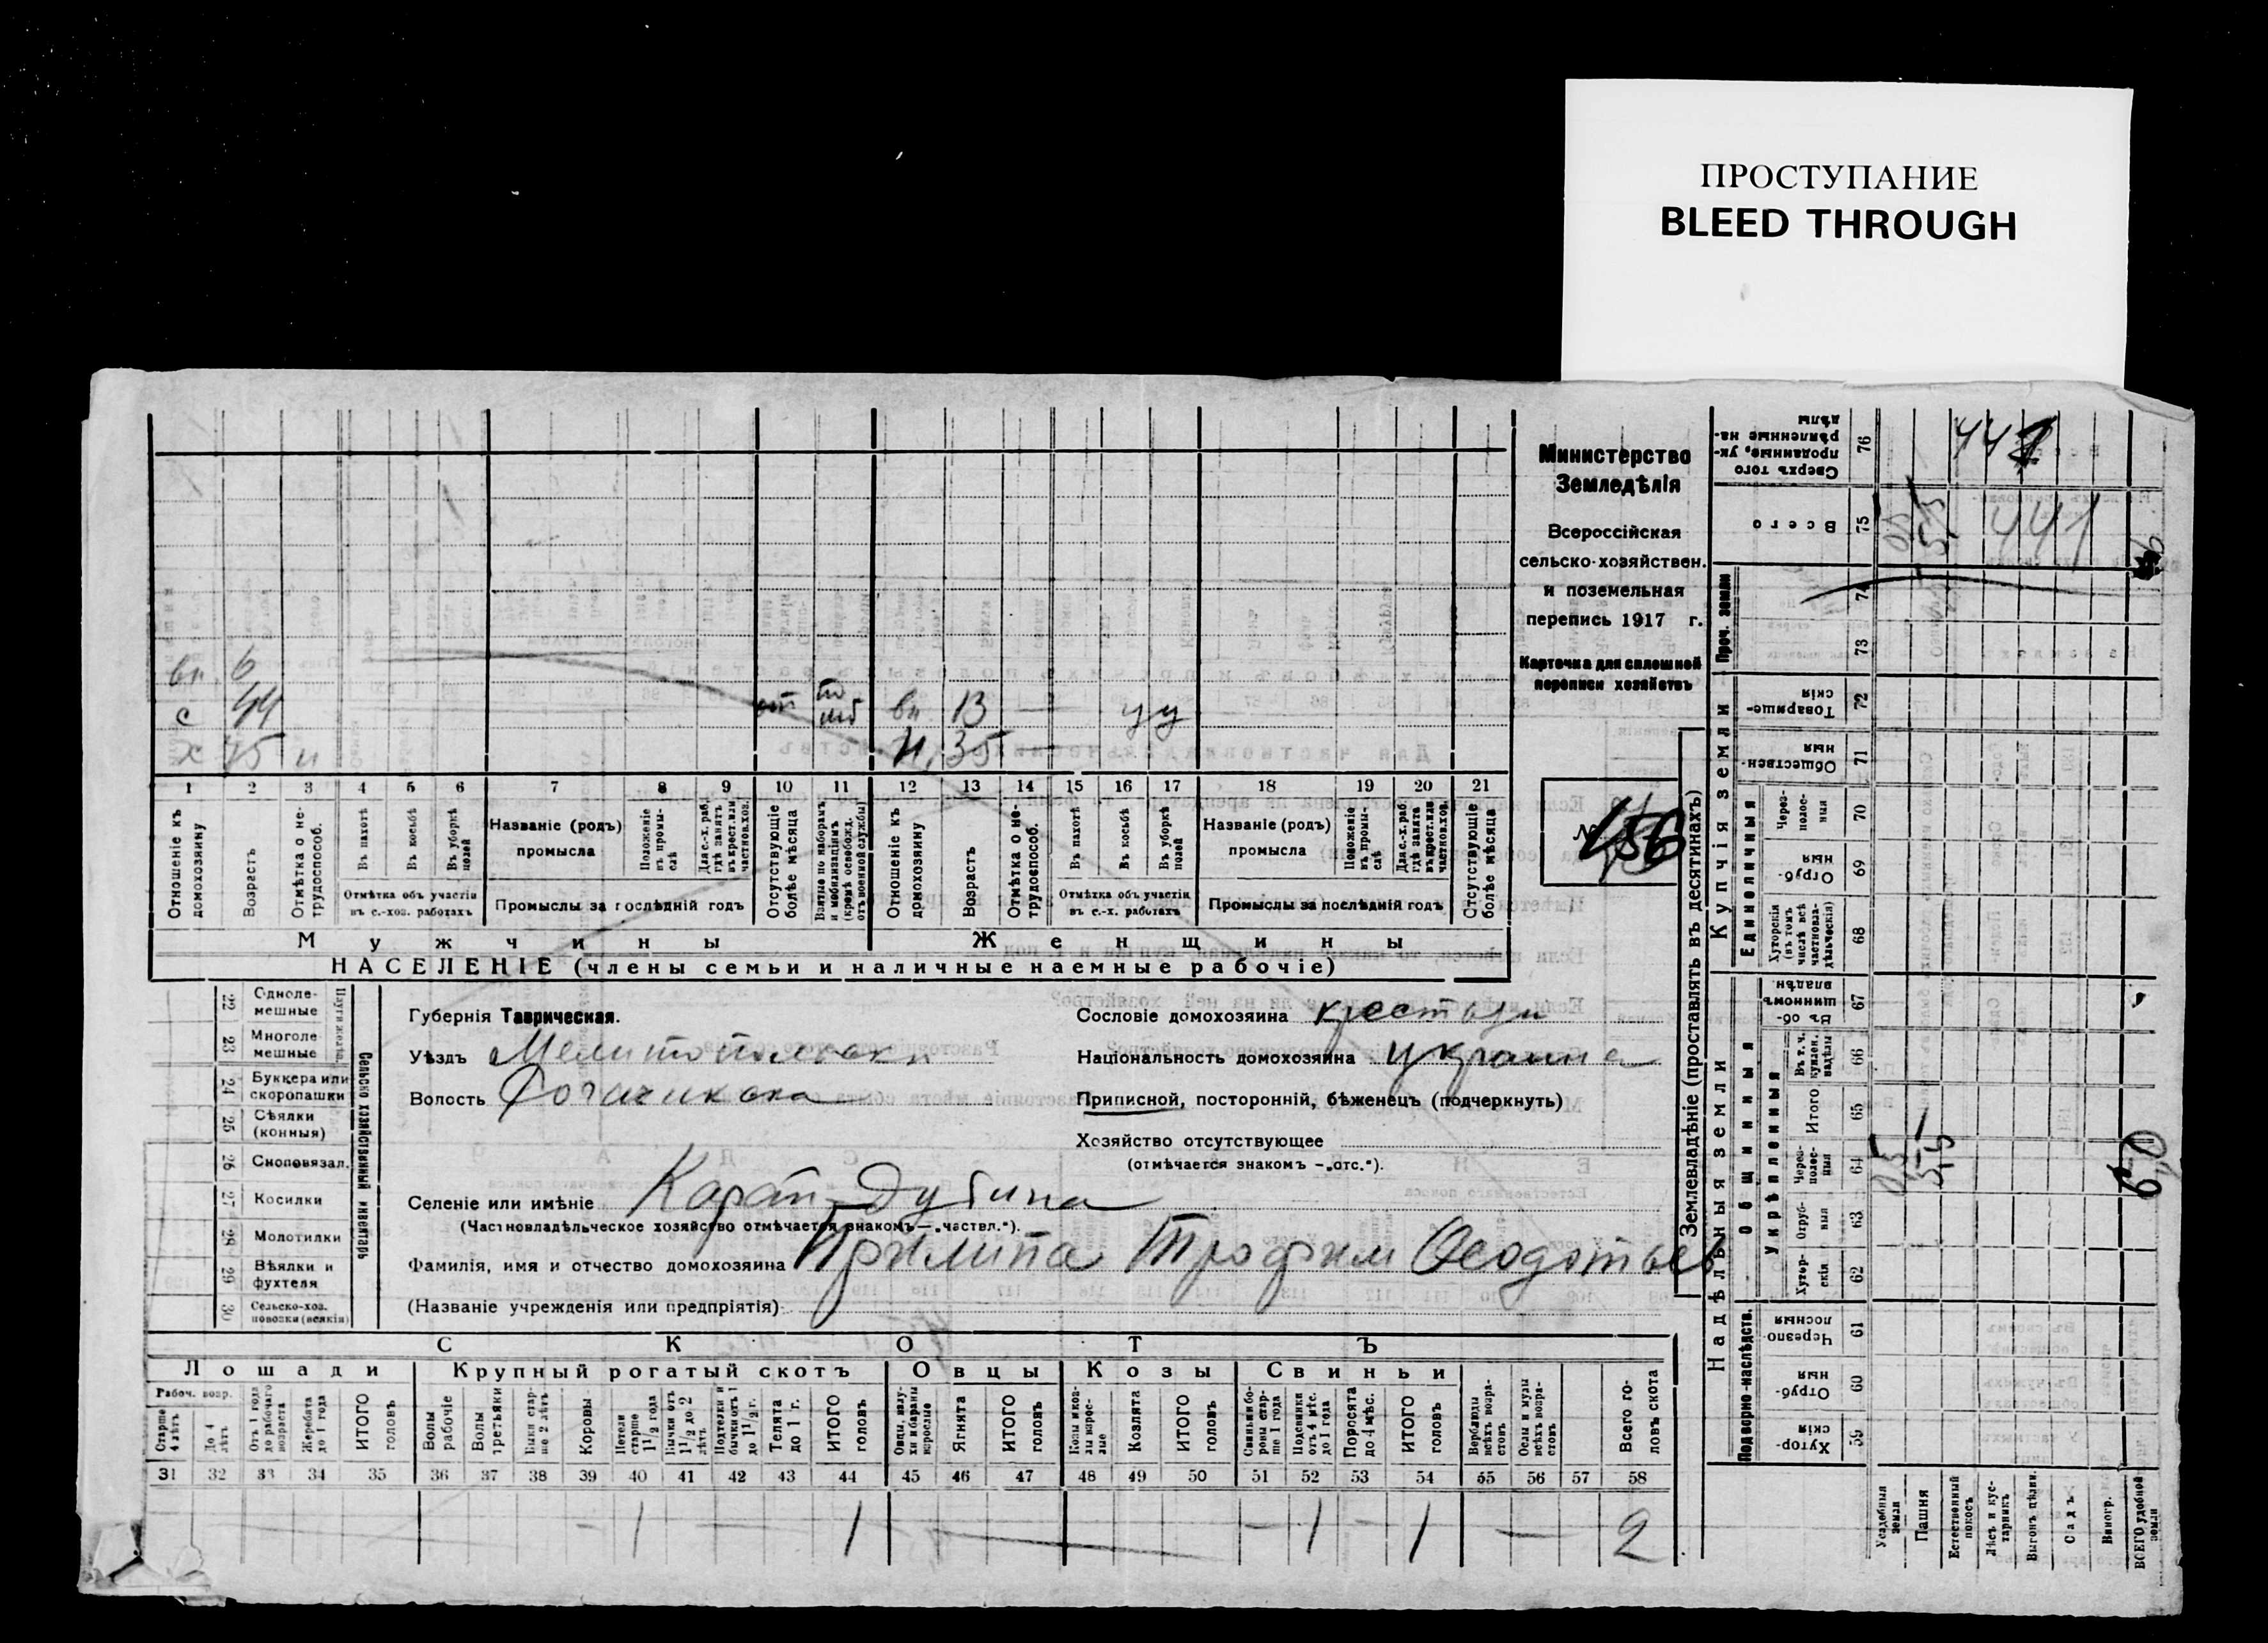 ПРОСТУПАНИЕ
BLEED THROUGH
Министерство
Земледѣлія
Всероссійская
сельско-хозяйствен.
и поземельная
перепись 1917 г.
Карточка для сплошной
переписи хозяйствъ
№ 456
вн. 6
с 44 от по моб вн 13 — у у
х 75 н 35 —
1 2 3 4 5 6 7 8 9 10 11 12 13 14 15 16 17 18 19 20 21
Отношеніе къ домохозяину
Возрастъ
Отмѣтка о не-трудоспособ.
Въ пахотѣ
Въ косьбѣ
Въ уборкѣ полей
Отмѣтка объ участіи
въ с.-хоз. работахъ
Названіе (родъ)
промысла
Положеніе въ промы-слѣ
Для с.-х. раб. гдѣ занятъ въ крест. или частновл. хоз.
Промыслы за послѣдній годъ
Отсутствующіе болѣе мѣсяца
Взятые по наборамъ и мобилизаціямъ (кромѣ освобожд. отъ военной службы)
Отношеніе къ домохозяину
Возрастъ
Отмѣтка о не-трудоспособ.
Въ пахотѣ
Въ косьбѣ
Въ уборкѣ полей
Отмѣтка объ участіи
въ с.-х. работахъ
Названіе (родъ)
промысла
Положеніе въ промы-слѣ
Для с.-х. раб. гдѣ занята въ крест. или частновл. хоз.
Промыслы за послѣдній годъ
Отсутствующіе болѣе мѣсяца
Мужчины Женщины
НАСЕЛЕНІЕ (члены семьи и наличные наемные рабочіе)
22 Одноле-мешные
23 Многоле-мешные
24 Буккера или скоропашки
25 Сѣялки (конныя)
26 Сноповязал.
27 Косилки
28 Молотилки
29 Вѣялки и фухтеля
30 Сельско-хоз. повозки (всякія)
Сельско хозяйственный инвентарь
Губернія Таврическая.
Уѣздъ Мелитопольскі
Волость Рогачикска
Сословіе домохозяина крестьян
Національность домохозяина украине
Приписной, посторонній, бѣженецъ (подчеркнуть)
Хозяйство отсутствующее
(отмѣчается знакомъ — „отс.“).
Селеніе или имѣніе Карай-Дубина
(Частновладѣльческое хозяйство отмѣчается знакомъ — „частвл.“).
Фамилія, имя и отчество домохозяина Прилипа Трофим Феодотьев
(Названіе учрежденія или предпріятія)
СКОТЪ
Лошади Крупный рогатый скотъ Овцы Козы Свиньи
Рабоч. возр.
Старше 4 лѣтъ
До 4 лѣтъ
Отъ 1 года до рабочаго возраста
Жеребята до 1 года
ИТОГО головъ
Волы рабочіе
Волы третьяки
Быки стар-ше 2 лѣтъ
Коровы
Нетели старше 1 1/2 года
Бычки отъ 1 1/2 до 2 лѣтъ
Подтелки и бычки отъ 1 до 1 1/2 г.
Телята до 1 г.
ИТОГО головъ
Овцы, валу-хи и бараны взрослые
Ягнята
ИТОГО головъ
Козы и коз-лы взрос-лые
Козлята
ИТОГО головъ
Свиньи бо-ровы стар-ше 1 года
Подсвинки отъ 4 мѣс. до 1 года
Поросята до 4 мѣс.
ИТОГО головъ
Верблюды всѣхъ возра-стовъ
Ослы и мулы всѣхъ возра-стовъ
Всего го-ловъ скота
31 32 33 34 35 36 37 38 39 40 41 42 43 44 45 46 47 48 49 50 51 52 53 54 55 56 57 58
— 1 — 1 — — 1 — 1 — 2
Землевладѣніе (проставлять въ десятинахъ)
Надѣльныя земли
Купчія земли
Проч. земли
Подворно-наслѣдств.
Общинныя
Укрѣпленныя
Единоличныя
59 Хутор-скія
60 Отруб-ныя
61 Черезпо-лосныя
62 Хутор-скія
63 Отруб-ныя
64 Через-полос-ныя
65 Итого
66 Въ т. ч. куплен. надѣлы
67 Въ об-щинномъ владѣн.
68 Хуторскія (въ томъ числѣ всѣ частновла-дѣльческія)
69 Отруб-ныя
70 Через-полос-ныя
71 Обществен-ныя
72 Товарище-скія
73
74
75 Всего
76 Сверхъ того проданные, ук-рѣпленные на-дѣлы
Усадебныя земли
Пашня
Естественный покосъ
Лѣсъ и кус-тарникъ
Выгонъ цѣлин.
Садъ
Виногр.
ВСЕГО удобной земли
0,5
5,5
6,0
0,5
5,5
441
441